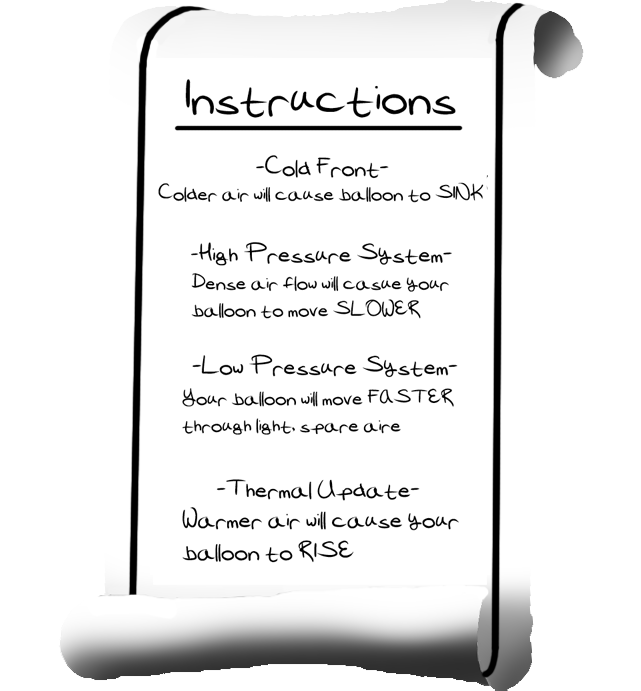 Instructions
-Cold Front-
Colder air will cause balloon to SINK
-High Pressure System-
Dense air flow will casue your
balloon to move SLOWER
-Low Pressure System-
Your balloon will move FASTER
through light, spare aire
-Thermal Update-
Warmer air will cause your
balloon to RISE